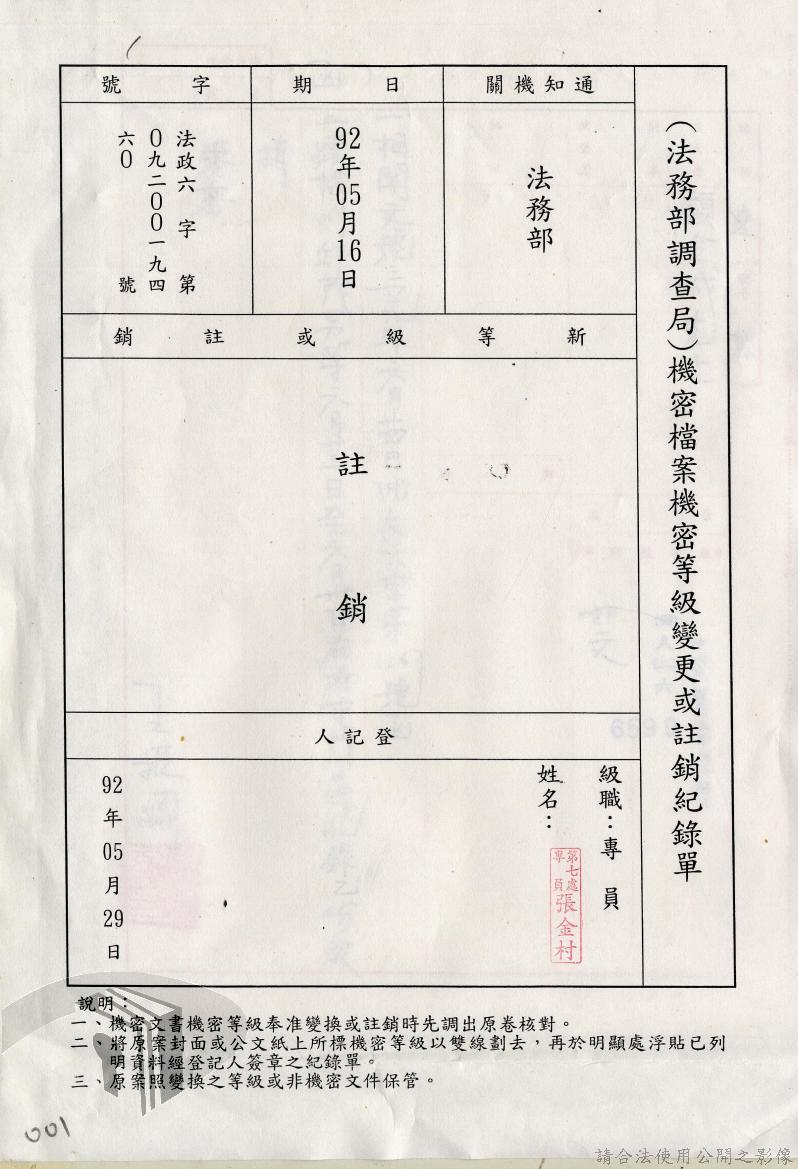 (法務部調查局)機密檔案機密等級變更或註銷紀錄單
通知機關
日期
字號
法務部
92年05月16日
法政六字第
０九二００一九四
六０號
新等級或註銷
註銷
登記人
級職：專員
姓名：
第七處
專員
張金村
92年05月29日
說明：
一、機密文書機密等級奉准變換或註銷時先調出原卷核對。
二、將原案封面或公文紙上所標機密等級以雙線劃去，再於明顯處浮貼已列
明資料經登記人簽章之紀錄單。
三、原案照變換之等級或非機密文件保管。
001
請合法使用公開之影像